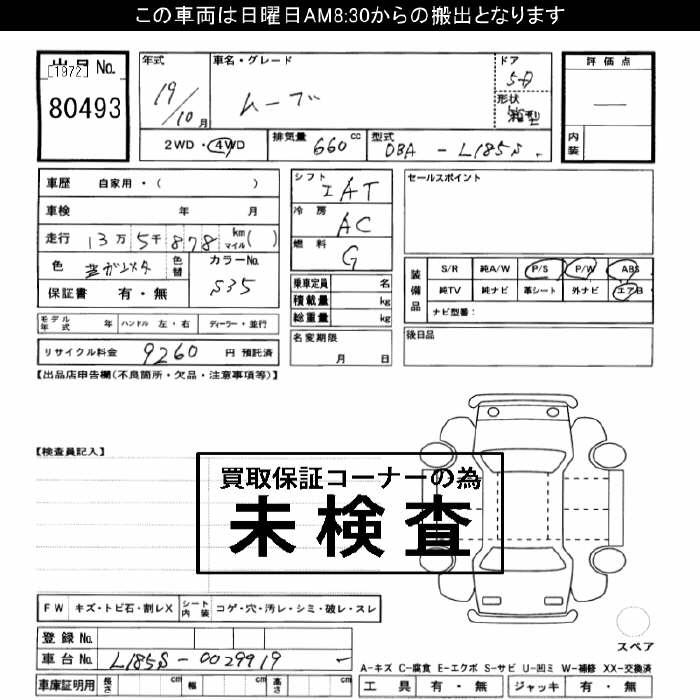 この車両は日曜日AM8:30からの搬出となります
出品No.
[1972]
80493
年式
19/10月
車名・グレード
ムーブ
ドア
5D
形状
箱型
評価点
内装
2WD・4WD
排気量 660cc
型式 DBA - L185S
車歴 自家用・( )
車検 年 月
走行 13万5千878 km マイル( )
色
色替
カラーNo.
S35
保証書 有・無
シフト
IAT
冷房
AC
燃料
G
乗車定員 名
積載量 kg
総重量 kg
セールスポイント
装備品
S/R 純A/W P/S P/W ABS
純TV 純ナビ 革シート 外ナビ エアB
ナビ型番:
モデル年式 年 ハンドル 左・右 ディーラー・並行
リサイクル料金 9260 円 預託済
名変期限
月 日
後日品
【出品店申告欄(不良箇所・欠品・注意事項等)】
【検査員記入】
買取保証コーナーの為
未検査
FW キズ・トビ石・割レX シート内装 コゲ・穴・汚レ・シミ・破レ・スレ
登録No.
車台No. L185S-0029919
スペア
A-キズ C-腐食 E-エクボ S-サビ U-凹ミ W-補修 XX-交換済
車庫証明用 長さ cm 幅 cm 高さ cm
工具 有・無 ジャッキ 有・無